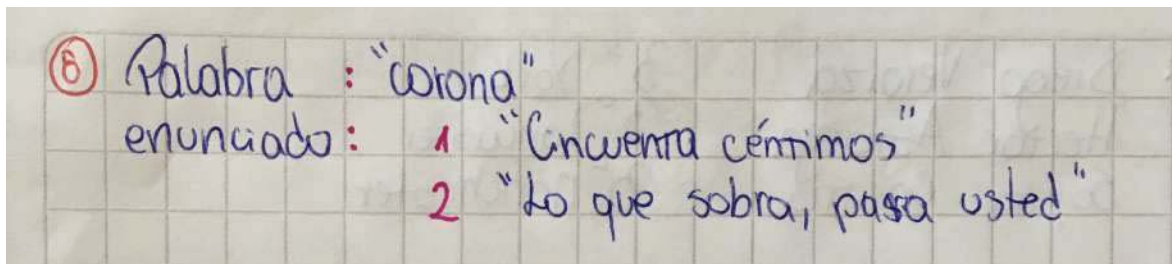 ⑥ Palabra : "corona"
enunciado: 1 "Cincuenta céntimos"
2 "Lo que sobra, para usted"